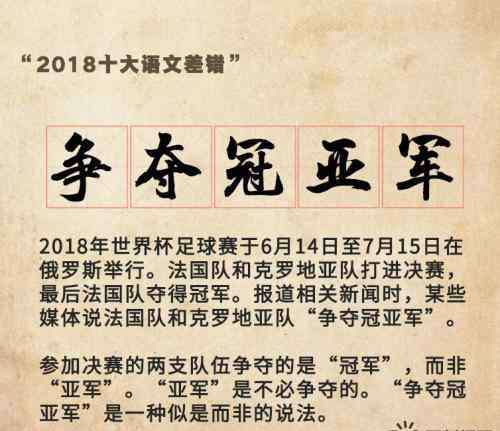 “2018十大语文差错”
争夺冠亚军
2018年世界杯足球赛于6月14日至7月15日在
俄罗斯举行。法国队和克罗地亚队打进决赛，
最后法国队夺得冠军。报道相关新闻时，某些
媒体说法国队和克罗地亚队“争夺冠亚军”。
参加决赛的两支队伍争夺的是“冠军”，而非
“亚军”。“亚军”是不必争夺的。“争夺冠
亚军”是一种似是而非的说法。